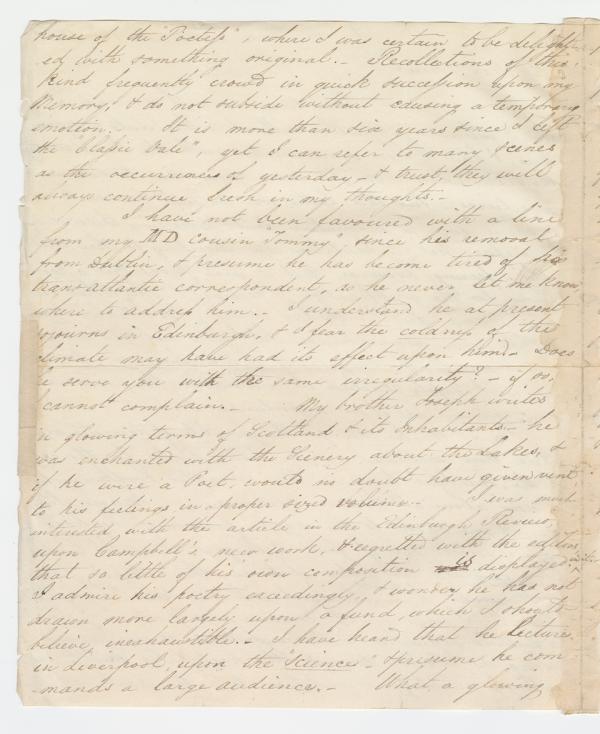 house of the "Poetess", where I was certain to be delight-
ed with something original.- Recollections of this
kind frequently crowd in quick succession upon my
Memory, & do not subside without causing a temporary
emotion.- It is more than six years since I left
the "Classic Vale", yet I can refer to many scenes
as the occurrences of yesterday - & trust, they will
always continue fresh in my thoughts.-
I have not been favoured with a line
from my MD cousin "Tommy" since his removal
from Dublin, & presume he has become tired of his
trans-atlantic correspondent, as he never let me know
where to address him.- I understand he at present
sojourns in Edinburgh, & I fear the coldness of the
climate may have had its effect upon him.- Does
he serve you with the same irregularity? - if so,
I cannot complain.- My brother Joseph writes
in glowing terms of Scotland & its Inhabitants - he
was enchanted with the Scenery about the Lakes, &
if he were a Poet, would no doubt have given vent
to his feelings in a proper sized volume.- I was much
interested with the article in the Edinburgh Review,
upon Campbell's new work, & regretted with the editor
that so little of his own composition is displayed
I admire his poetry exceedingly, & wonder he has not
drawn more largely upon a fund, which I should
believe inexhaustible.- I have heard that he lectures
in Liverpool, upon the "Science" - & presume he com-
-mands a large audience.- What a glowing